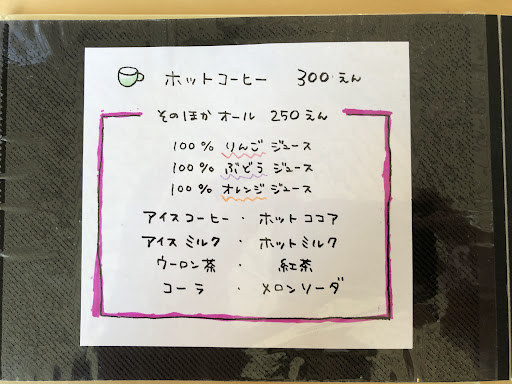 ホットコーヒー 300えん
そのほか オール 250えん
100% りんごジュース
100% ぶどうジュース
100% オレンジジュース
アイスコーヒー ・ ホットココア
アイスミルク ・ ホットミルク
ウーロン茶 ・ 紅茶
コーラ ・ メロンソーダ